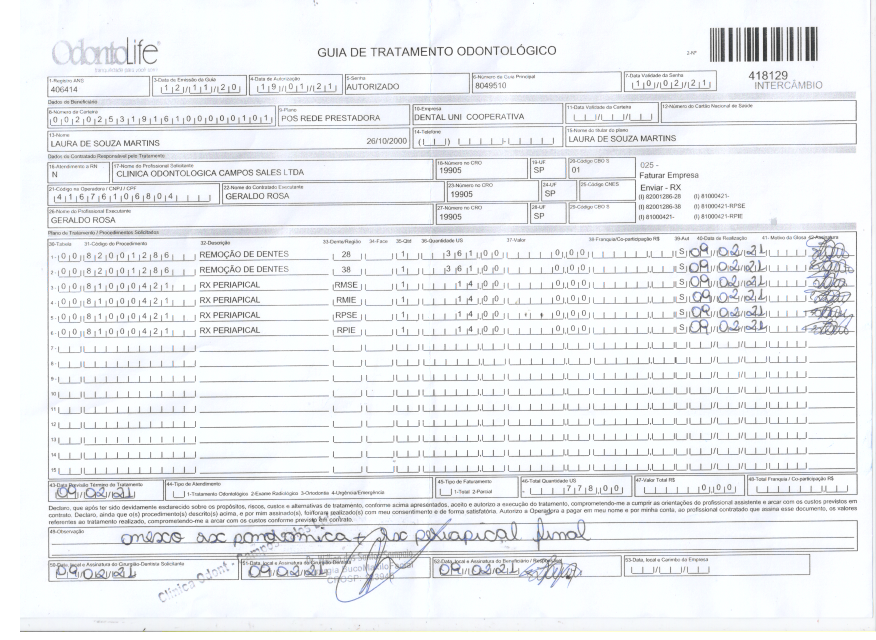 OdontoLife
GUIA DE TRATAMENTO ODONTOLÓGICO
2-Nº
418129
INTERCÂMBIO
1-Registro ANS
406414
3-Data de Emissão da Guia
12/11/20
4-Data de Autorização
19/01/21
5-Senha
AUTORIZADO
6-Número da Guia Principal
8049510
7-Data Validade da Senha
10/02/21
Dados do Beneficiário
8-Número da Carteira
00202531916100000101
9-Plano
POS REDE PRESTADORA
10-Empresa
DENTAL UNI COOPERATIVA
11-Data Validade da Carteira
12-Número do Cartão Nacional de Saúde
13-Nome
LAURA DE SOUZA MARTINS 26/10/2000
14-Telefone
15-Nome do titular do plano
LAURA DE SOUZA MARTINS
Dados do Contratado Responsável pelo Tratamento
16-Atendimento a RN
N
17-Nome do Profissional Solicitante
CLINICA ODONTOLOGICA CAMPOS SALES LTDA
18-Número no CRO
19905
19-UF
SP
20-Código CBO S
01
025 -
Faturar Empresa
Enviar - RX
(I) 82001286-28 (I) 81000421-
(I) 82001286-38 (I) 81000421-RPSE
(I) 81000421- (I) 81000421-RPIE
21-Código na Operadora / CNPJ / CPF
41676106804
22-Nome do Contratado Executante
GERALDO ROSA
23-Número no CRO
19905
24-UF
SP
25-Código CNES
26-Nome do Profissional Executante
GERALDO ROSA
27-Número no CRO
19905
28-UF
SP
29-Código CBO S
Plano de Tratamento / Procedimentos Solicitados
30-Tabela 31-Código do Procedimento 32-Descrição 33-Dente/Região 34-Face 35-Qtd 36-Quantidade US 37-Valor 38-Franquia/Co-participação R$ 39-Aut 40-Data de Realização 41- Motivo da Glosa 42-Assinatura
1- 00 82001286 REMOÇÃO DE DENTES 28 1 361,00 0,00 S 09/02/21
2- 00 82001286 REMOÇÃO DE DENTES 38 1 361,00 0,00 S 09/02/21
3- 00 81000421 RX PERIAPICAL RMSE 1 14,00 0,00 S 09/02/21
4- 00 81000421 RX PERIAPICAL RMIE 1 14,00 0,00 S 09/02/21
5- 00 81000421 RX PERIAPICAL RPSE 1 14,00 0,00 S 09/02/21
6- 00 81000421 RX PERIAPICAL RPIE 1 14,00 0,00 S 09/02/21
7-
8-
9-
10-
11
12
13
14
15
43-Data Previsão Término do Tratamento
09/02/21
44-Tipo de Atendimento
1-Tratamento Odontológico 2-Exame Radiológico 3-Ortodontia 4-Urgência/Emergência
45-Tipo de Faturamento
1-Total 2-Parcial
46-Total Quantidade US
778,00
47-Valor Total R$
0,00
48-Total Franquia / Co-participação R$
Declaro, que após ter sido devidamente esclarecido sobre os propósitos, riscos, custos e alternativas de tratamento, conforme acima apresentados, aceito e autorizo a execução do tratamento, comprometendo-me a cumprir as orientações do profissional assistente e arcar com os custos previstos em
contrato. Declaro, ainda que o(s) procedimento(s) descrito(s) acima, e por mim assinado(s), foi/foram realizado(s) com meu consentimento e de forma satisfatória. Autorizo a Operadora a pagar em meu nome e por minha conta, ao profissional contratado que assina esse documento, os valores
referentes ao tratamento realizado, comprometendo-me a arcar com os custos conforme previsto em contrato.
49-Observação
anexo rx panorâmica + rx periapical final
50-Data, local e Assinatura do Cirurgião-Dentista Solicitante
09/02/21
51-Data, local e Assinatura do Cirurgião-Dentista
09/02/21
52-Data, local e Assinatura do Beneficiário / Responsável
09/02/21
53-Data, local e Carimbo da Empresa
Clínica Odont.